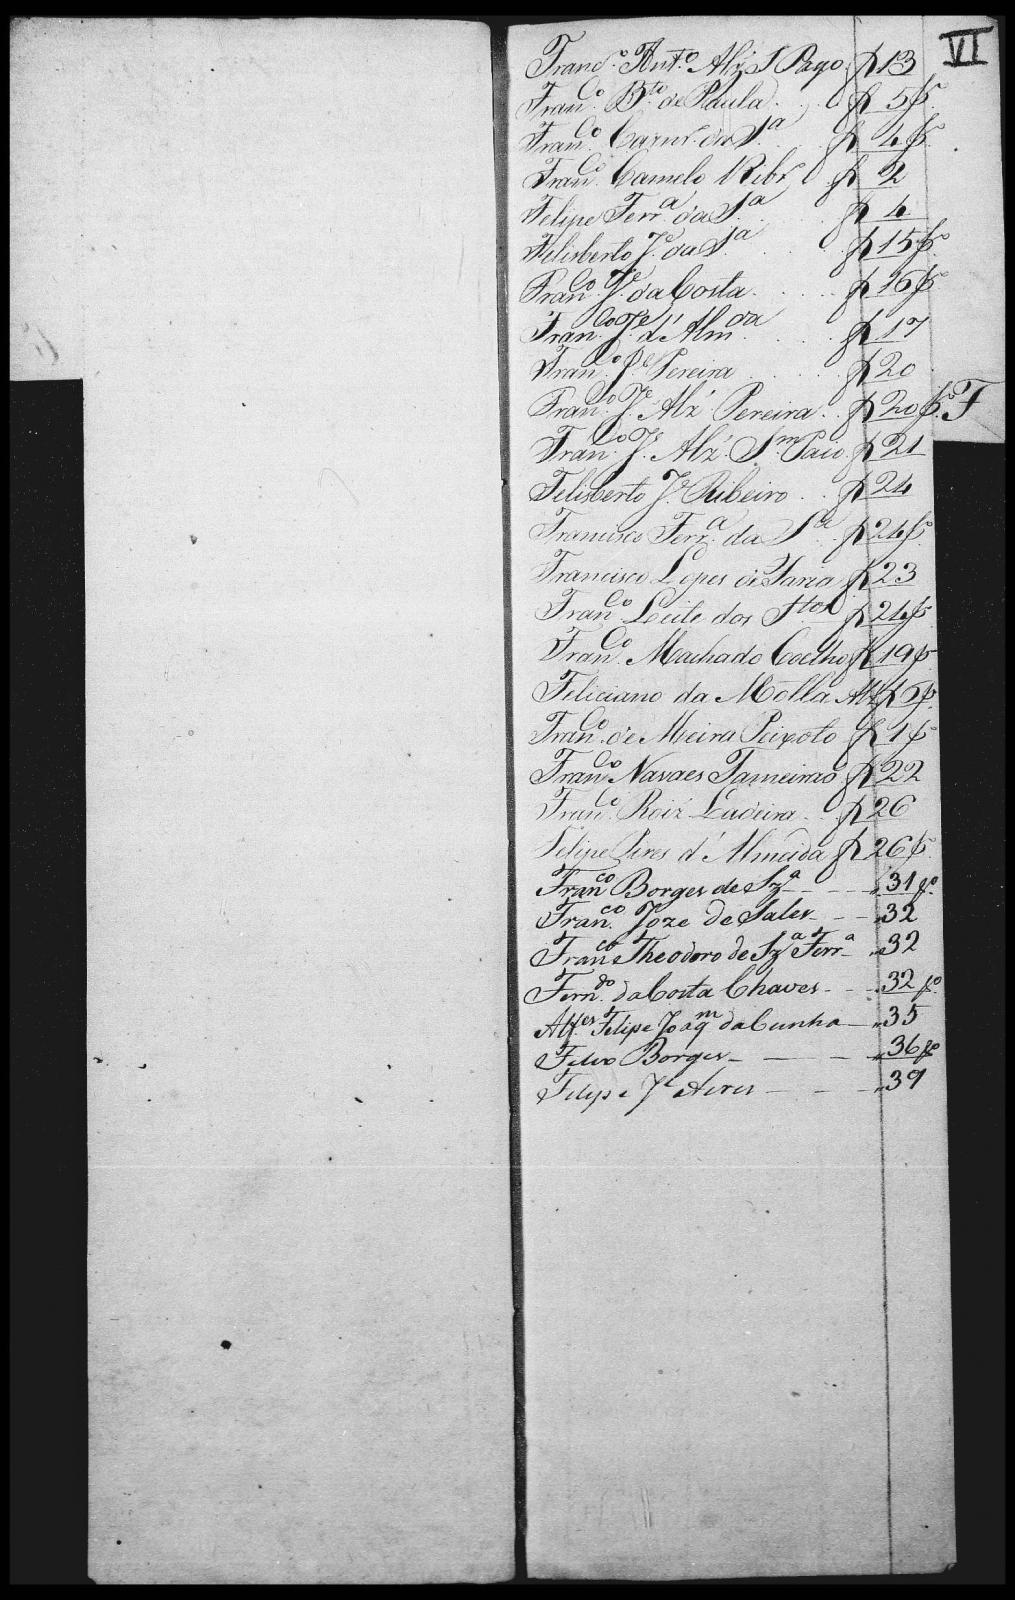 VI
Franc.º Ant.º Alz' S Payo f 13
Fran.co B.to de Paula f 5 f.º
Fran.co da S.a f 4 f.º
Fran.co Camelo Ribr.º f 2
Felipe Ferr.a da S.a f 4
Felisberto J.e da S.a f 15 f.º
Fran.co J.e da Costa f 16 f.º
Fran.co J.e d'Alm.da f 17
Fran.co J.e Pereira f 20
Fran.co J.e Alz' Pereira f 20 f.º F
Fran.co J.e Alz' S.m Paio f 21
Felisberto J.e Ribeiro f 24
Francisco Ferr.a da S.a f 24 f.º
Francisco Lopes de Faria f 23
Fran.co Leite dos S.tos f 24 f.º
Fran.co Machado Coelho f 19 f.º
Feliciano da Motta Alz' f 5 f.º
Fran.co de Meira Peixoto f 1 f.º
Fran.co Navaes Tameirão f 22
Fran.co Roiz' Ladeira f 26
Felipe Pires d'Almeida f 26 f.º
Fran.co Borges de Sz.a — — — " 31 f.º
Fran.co Joze de Sales — — " 32
Fran.co Theodoro de Sz.a Ferr.a " 32
Fern.do da Costa Chaves — — " 32 f.º
Alf.es Felipe Joaq.m da Cunha — " 35
Borges — — — " 36 f.º
Felipe J.e Aires — — — " 39